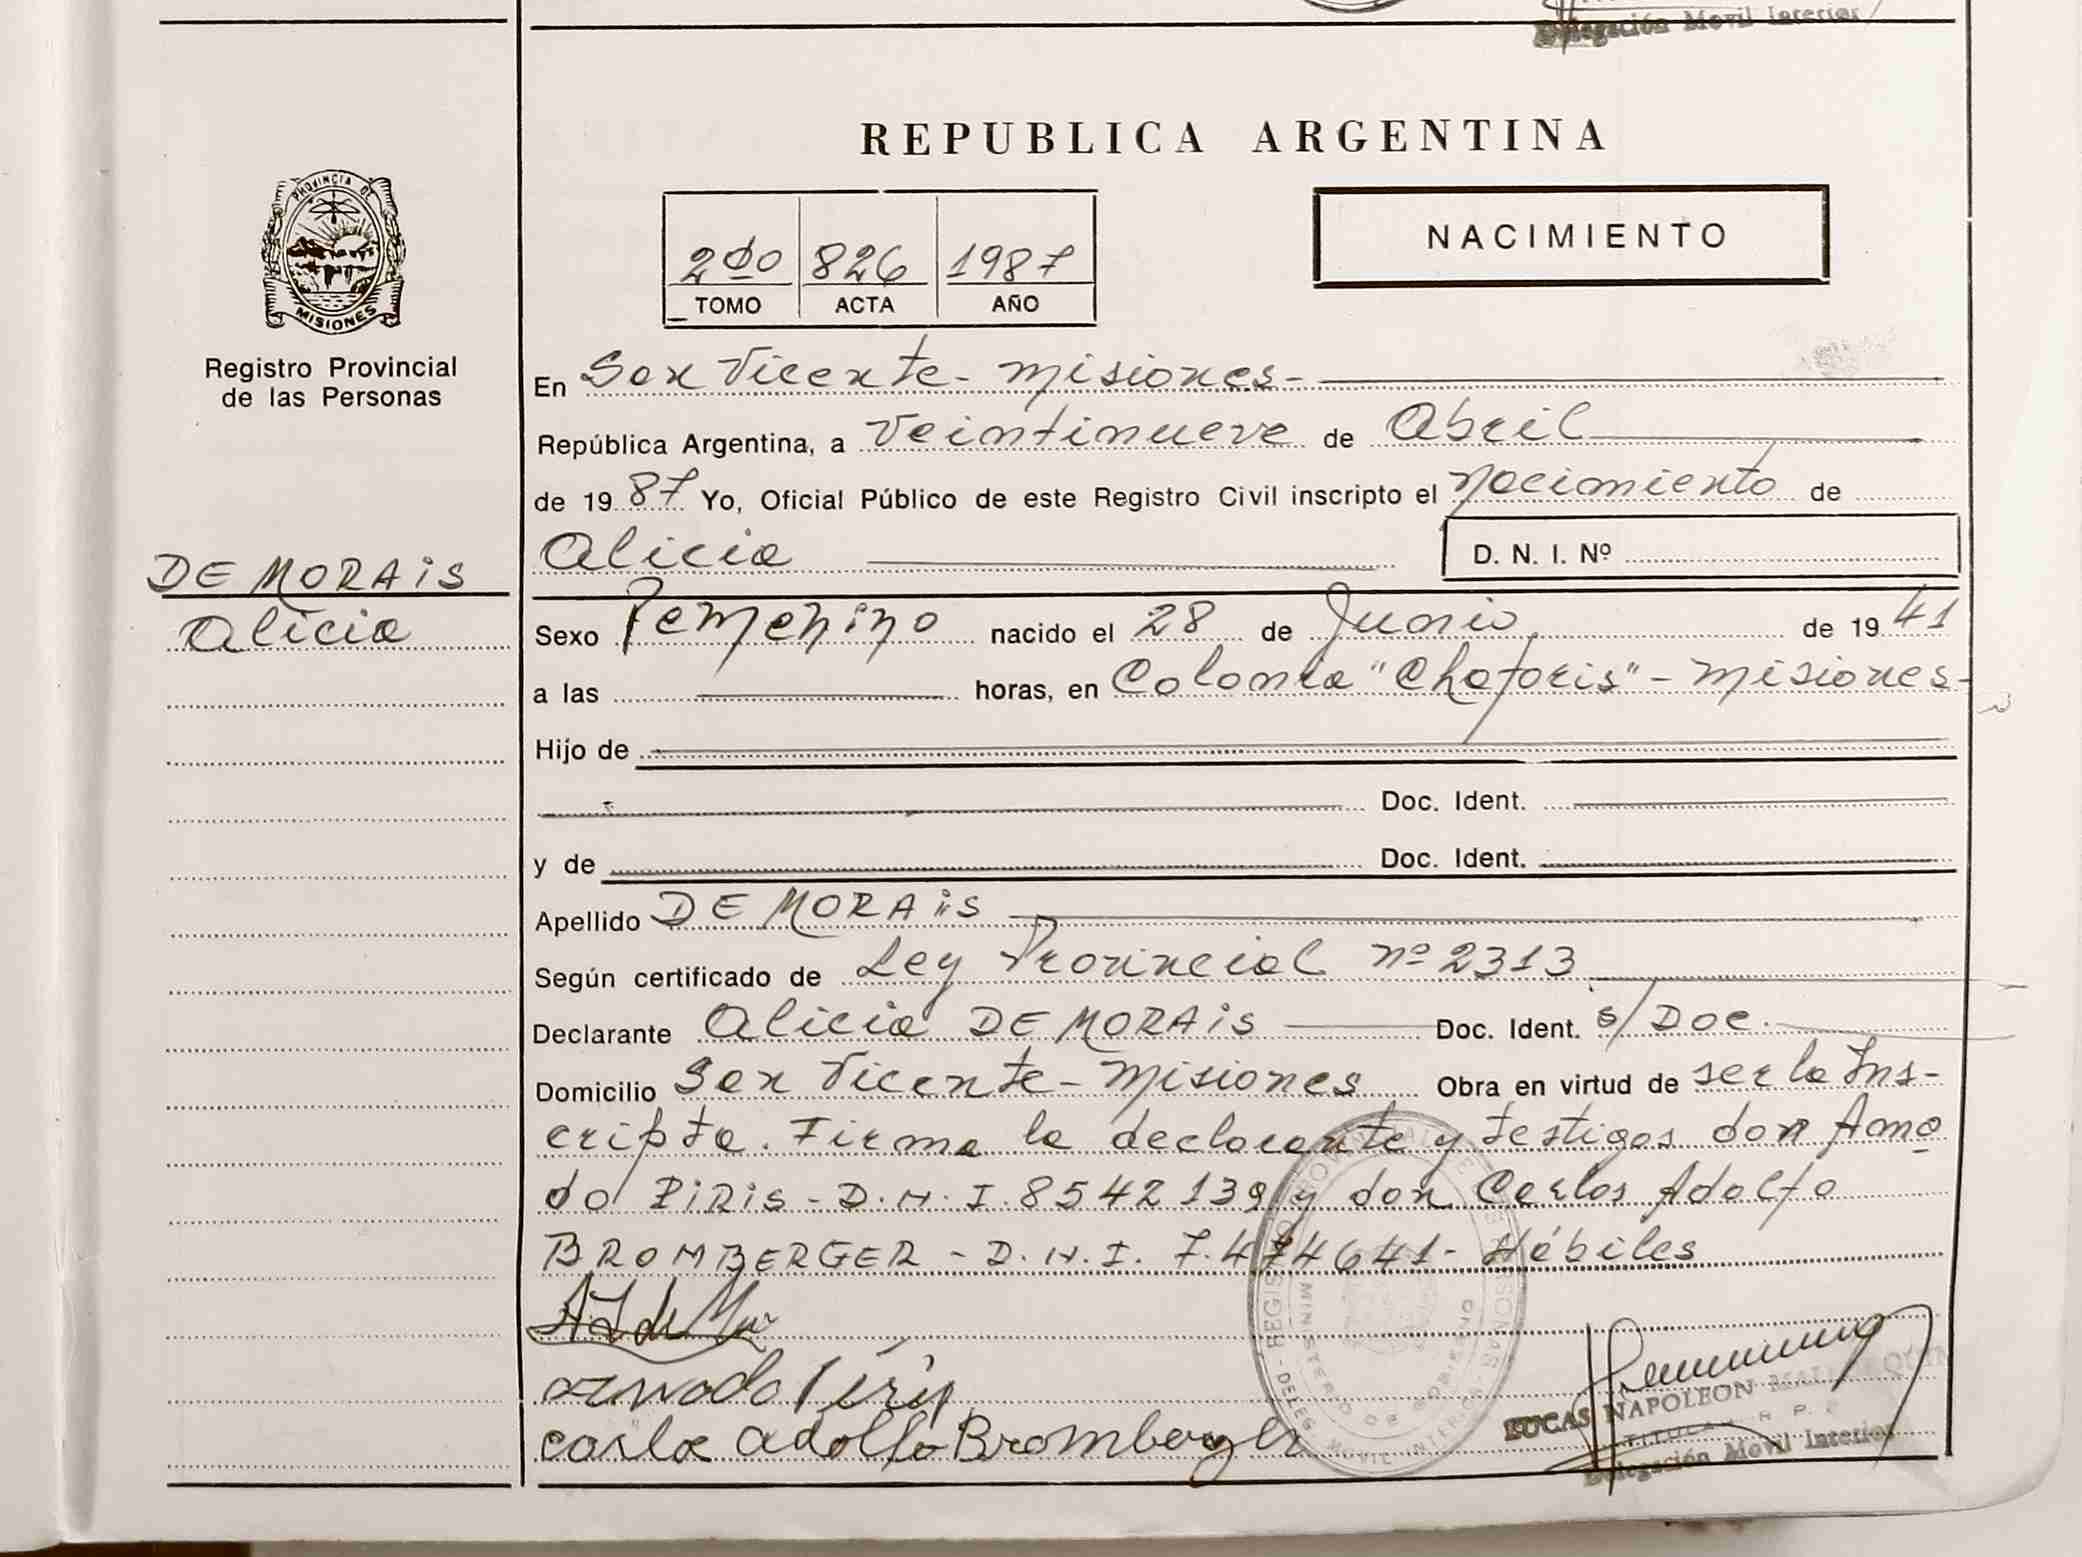 Delegación Movil Interior
REPUBLICA ARGENTINA
PROVINCIA DE
MISIONES
Registro Provincial
de las Personas
2do 826 1987
TOMO ACTA AÑO
NACIMIENTO
En San Vicente - Misiones -
República Argentina, a Veintinueve de Abril
de 1987 Yo, Oficial Público de este Registro Civil inscripto el Nacimiento de
Alicia D. N. I. Nº
DE MORAIS
Alicia
Sexo Femenino nacido el 28 de Junio de 1941
a las horas, en Colonia "Chafariz" - Misiones -
Hijo de
Doc. Ident.
y de Doc. Ident.
Apellido DE MORAIS
Según certificado de Ley Provincial Nº 2313
Declarante Alicia DE MORAIS Doc. Ident. s/Doc.
Domicilio San Vicente - Misiones Obra en virtud de ser la Ins-
cripta. Firma la declarante y testigos don Ama
do PIRIS - D.N.I. 8542139 y don Carlos Adolfo
BROMBERGER - D.N.I. 7.474641 - Hábiles
Carlos Adolfo Bromberger
MINISTERIO DE GOBIERNO
LUCAS NAPOLEON
TITULAR R. P.
Delegación Movil Interior